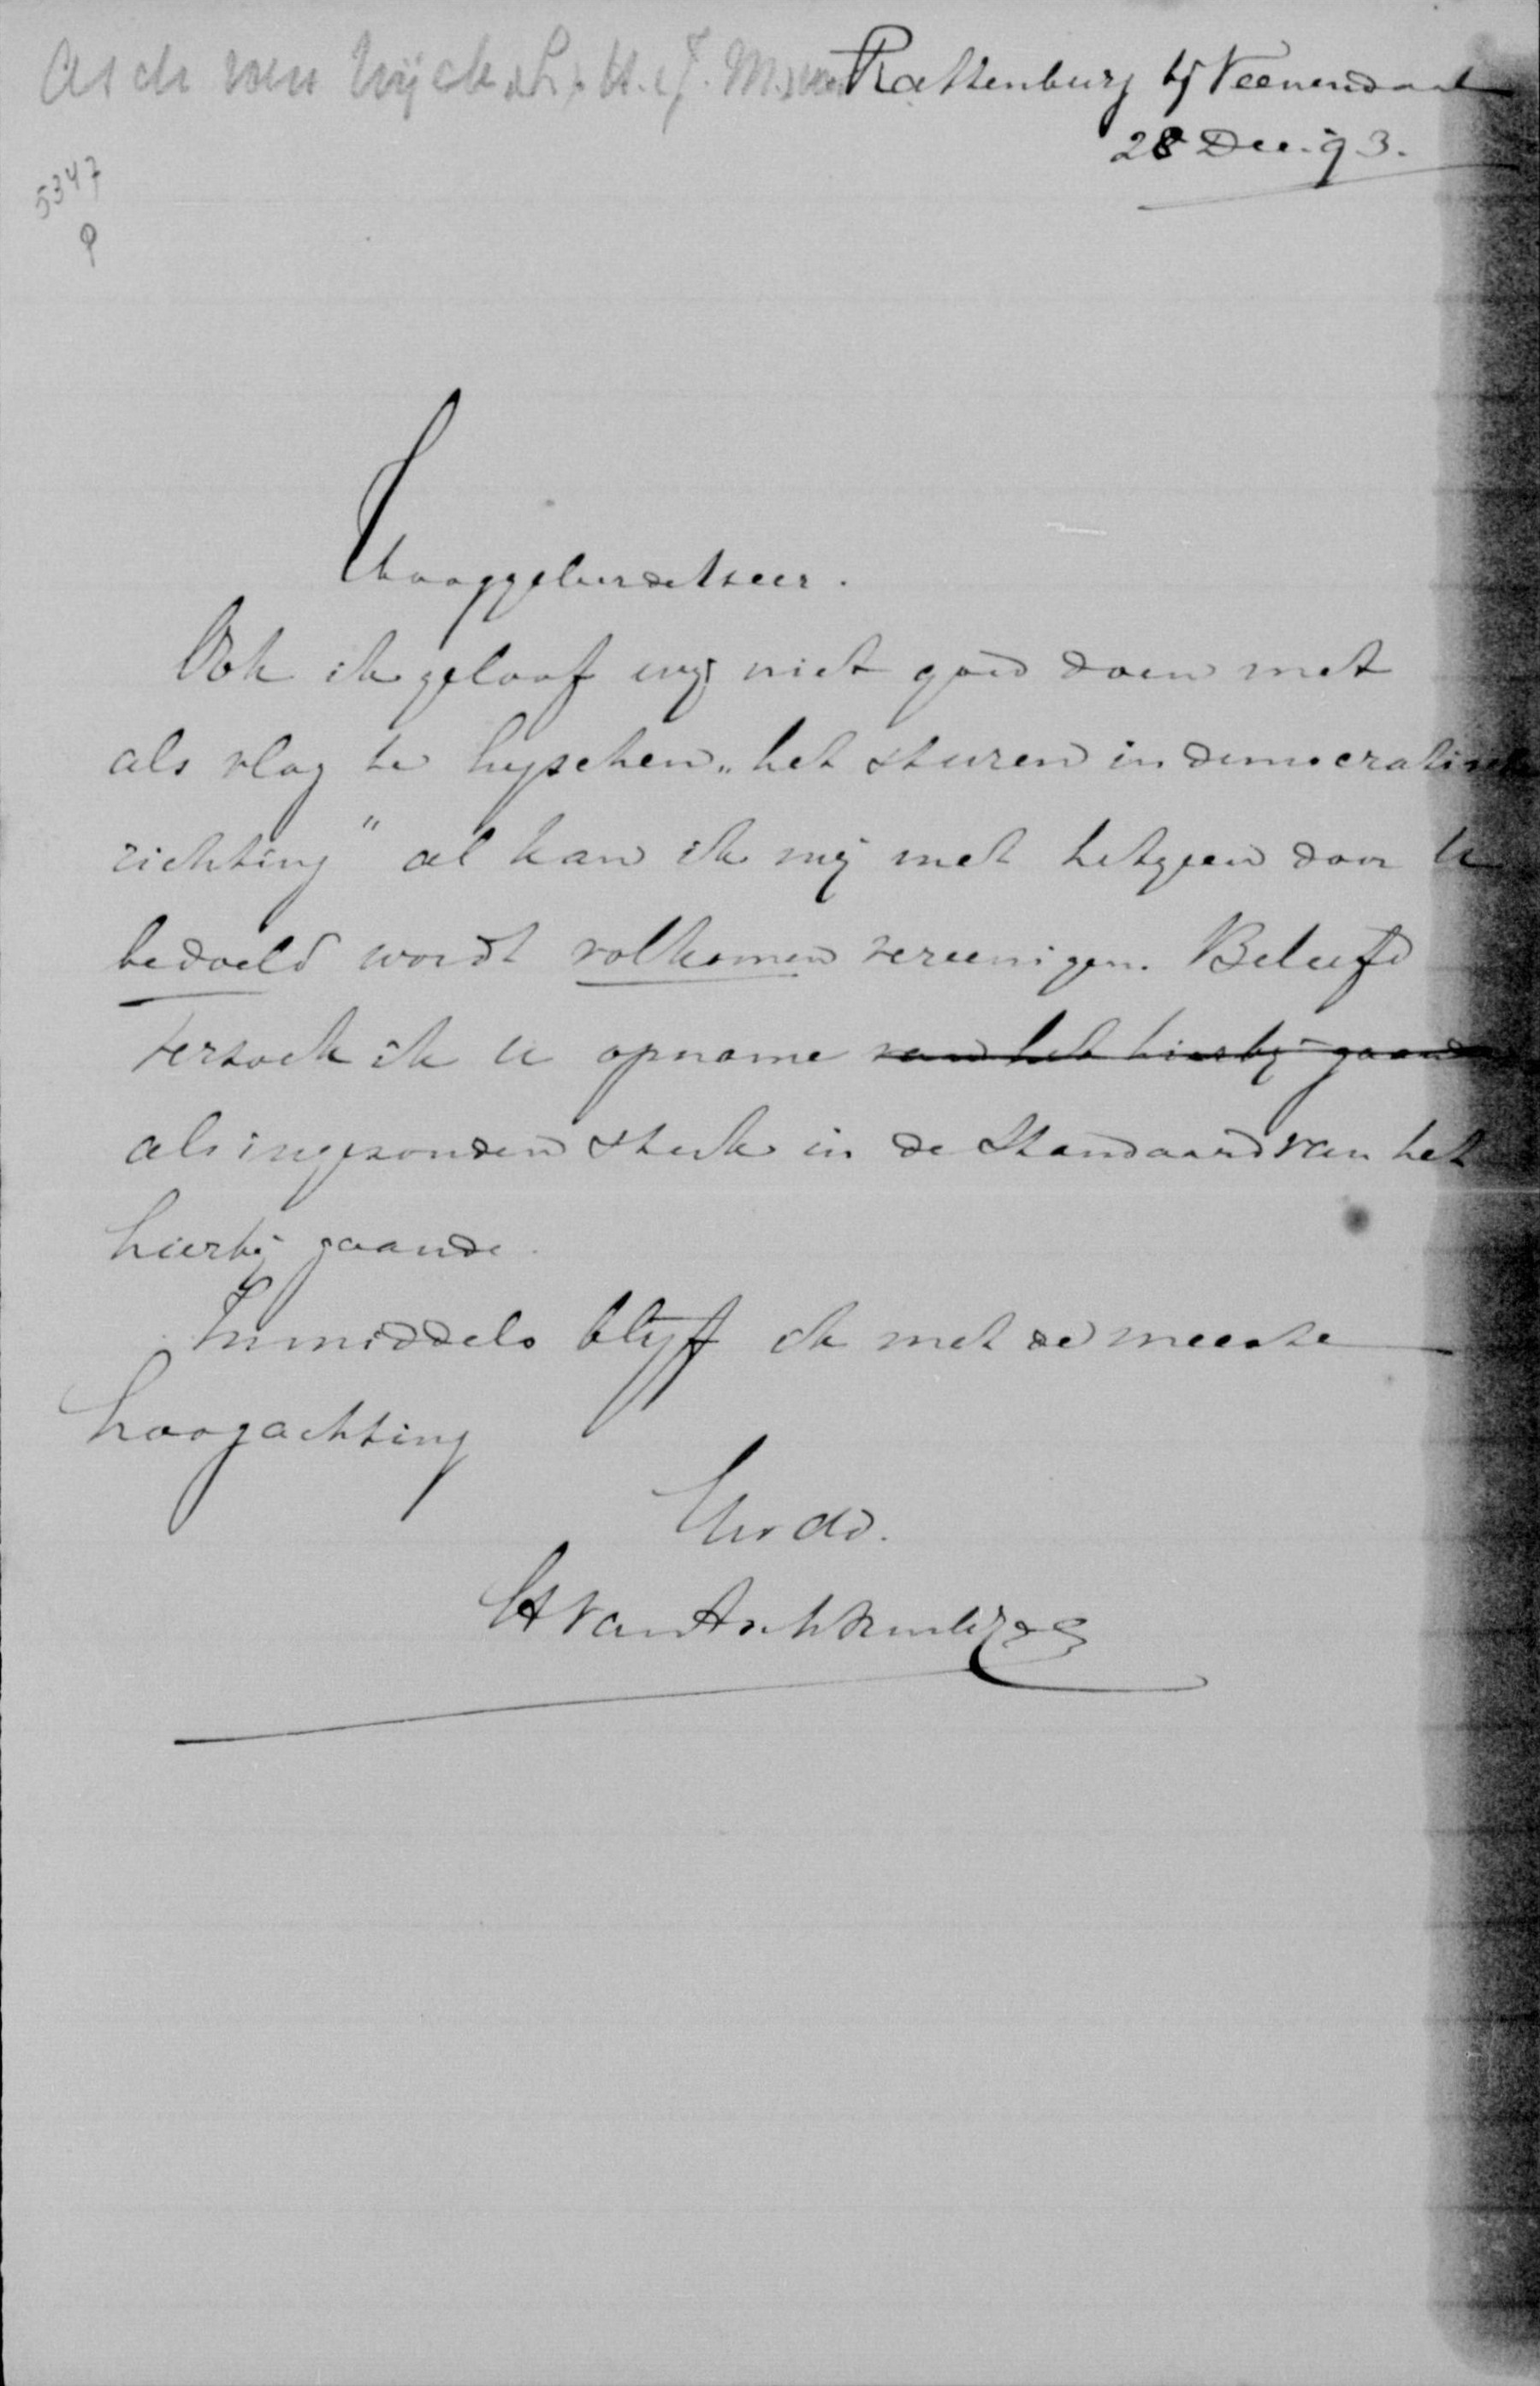 Asch van Wijck, Jhr. H. J. M. van
Rattenburg bij Veenendaal
28 Dec. 93.
5347
P
Hooggeleerde Heer.
Ook ik geloof wij niet goed doen met
als vlag te hyschen „het sturen in democratische
richting" al kan ik mij met hetgeen door U
bedoeld wordt volkomen vereenigen. Beleefd
verzoek ik U opname van het hierbij gaande
als ingezonden stuk in de Standaard van het
hierbij gaande.
Inmiddels blijf ik met de meeste
hoogachting
Uw dv.
HvanAschvanWijck